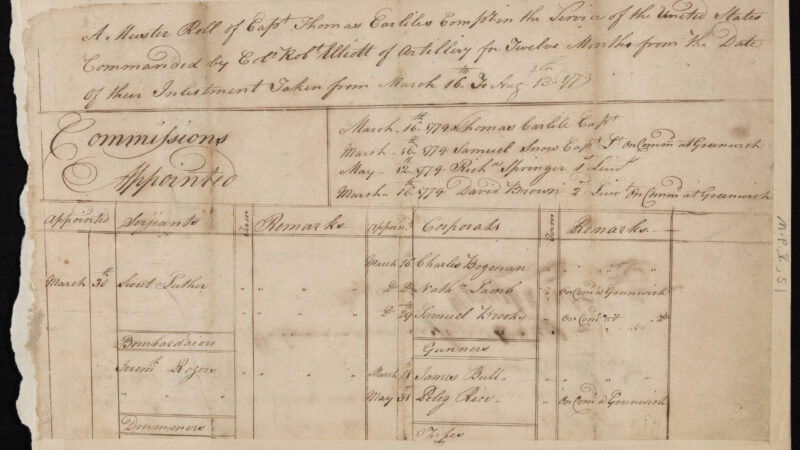 A Muster Roll of Capt Thomas Carliles Compy in the Service of the United States
Commanded by Colo Robt Elliott of Artillery for Twelve Months from the Date
of their Inlistment Taken from March 16th To Aug 13th
Commissions
Appointed
March 16th 1778 Thomas Carlile Capt
March 16th 1778 Samuel Snow Capt Lt on Comd at Greenwich
May 12th 1778 Richd Springer 1st Lieut
March 16th 1778 David Brown 2d Lieut on Comd at Greenwich
Appointed Serjeants Term Remarks Appoint Corporals Term Remarks
March 16 Charles Bogman " " "
March 30th Luther D Nathn Lamb " on Comd at Greenwich
D 29 Samuel Brooks " on Comd at
Bombardaiers Gunners
Jeremh Rogers " " " March James Bull " "
" " " " " May 31 Peleg Rice " on Comd at Greenwich
Drummers Fifes